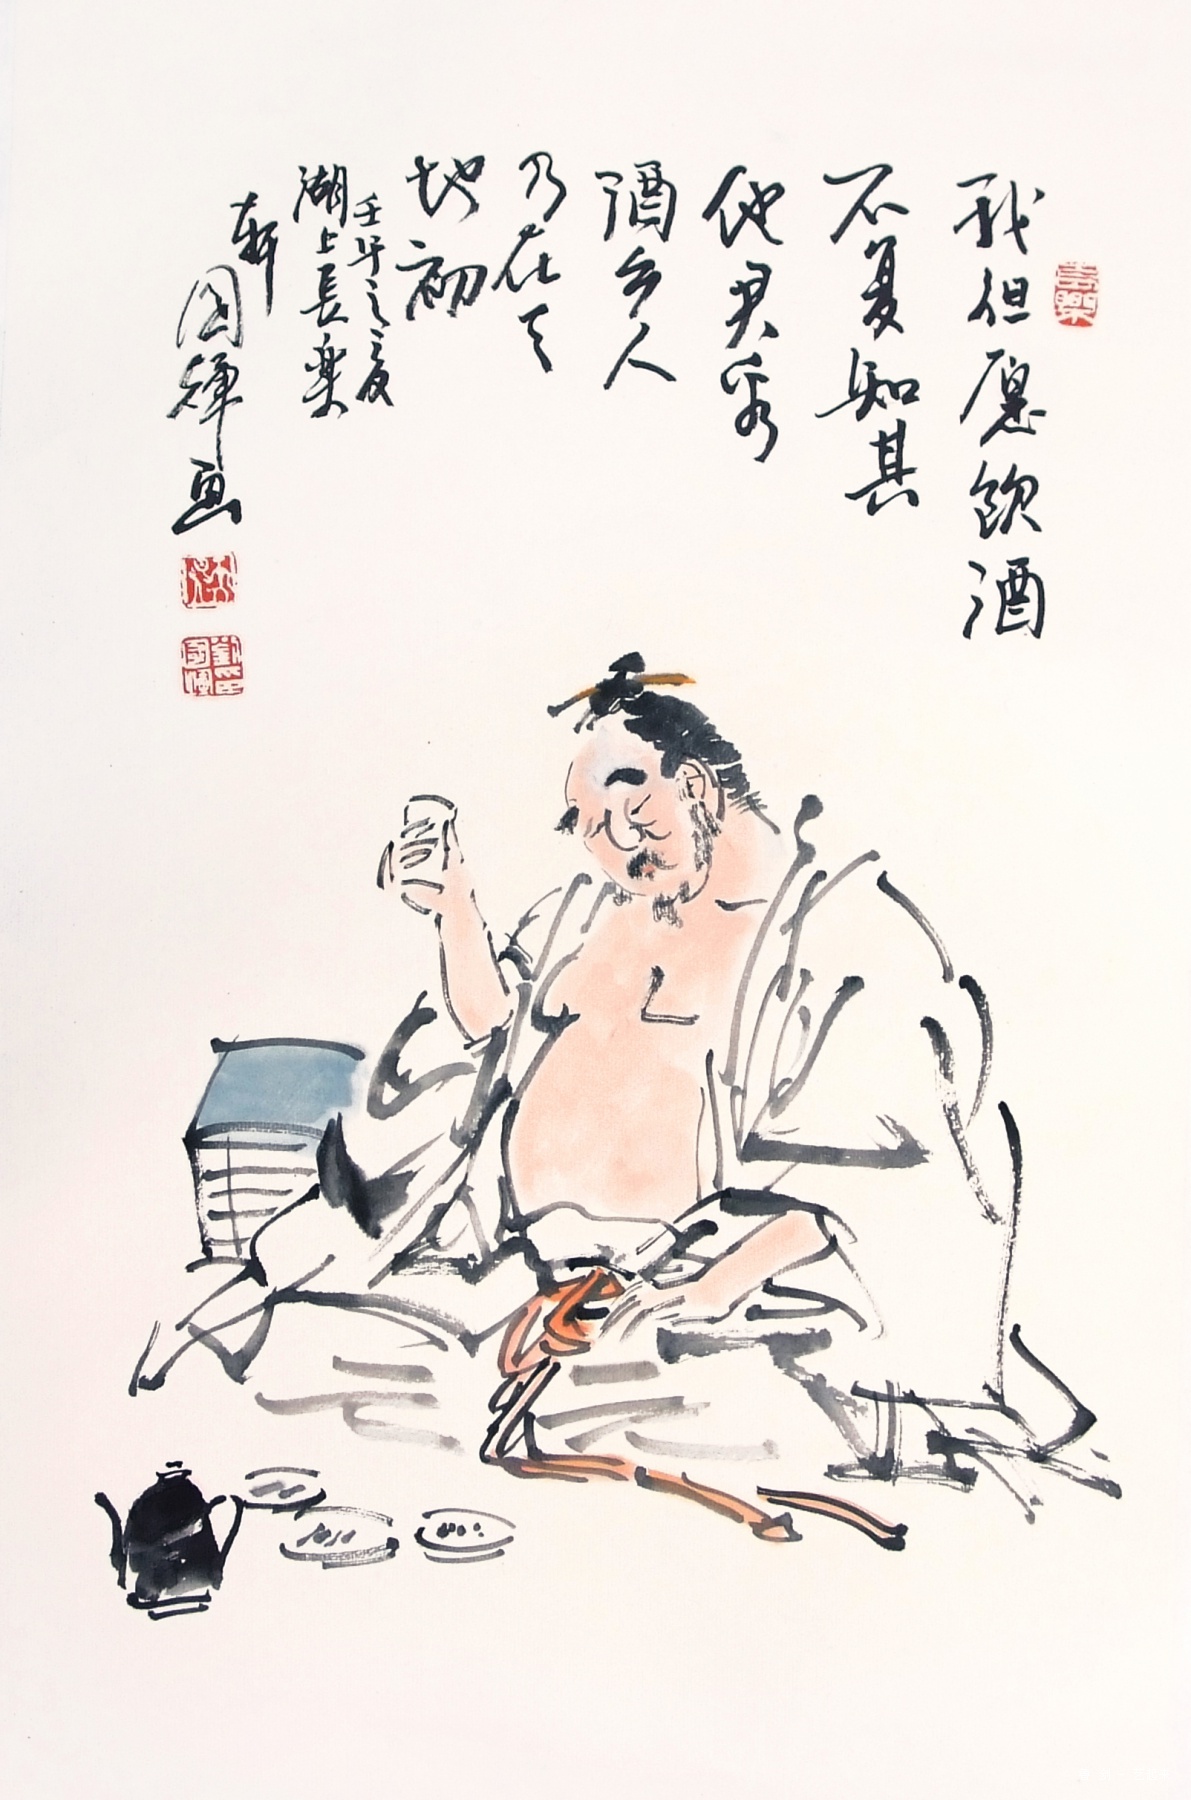 我但愿飲酒
不复知其
他君看
酒乡人
乃在天
地初
壬午之夏
湖上長楽
轩
国輝画